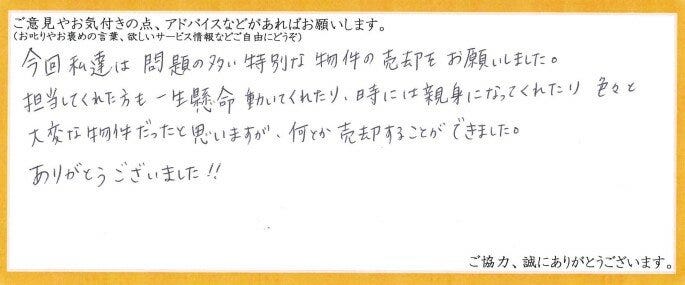 ご意見やお気付きの点、アドバイスなどがあればお願いします。
(お叱りやお褒めの言葉、欲しいサービス情報などご自由にどうぞ)
今回私達は問題の多い特別な物件の売却をお願いしました。
担当してくれた方も一生懸命動いてくれたり、時には親身になってくれたり 色々と
大変な物件だったと思いますが、何とか売却することができました。
ありがとうございました!!
ご協力、誠にありがとうございます。